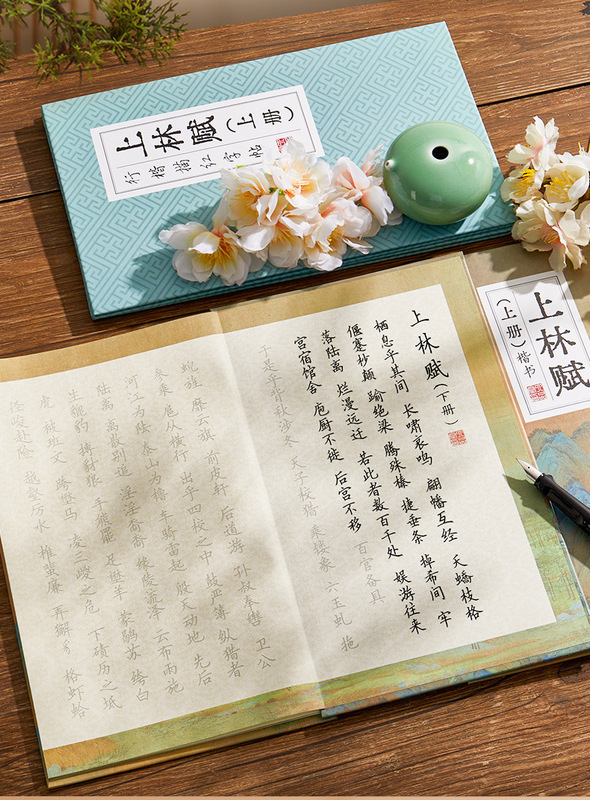 上林赋（上册）
行楷描红字帖
上林赋
（上册）楷书
上林赋（下册）
栖息乎其间 长啸哀鸣 翩幡互经 夭蟜枝格
偃蹇杪颠 踰绝梁 腾殊榛 捷垂条 掉希间 牢
落陆离 烂漫远迁 若此者数百千处 娱游往来
宫宿馆舍 庖厨不徙 后宫不移 百官备具
于是乎背秋涉冬 天子校猎 乘镂象 六玉虬 拖
蜺旌 靡云旗 前皮轩 后道游 孙叔奉辔 卫公
参乘 扈从横行 出乎四校之中 鼓严簿 纵猎者
河江为阹 泰山为橹 车骑雷起 殷天动地 先后
陆离 离散别追 淫淫裔裔 缘陵流泽 云布雨施
生貔豹 搏豺狼 手熊罴 足野羊 蒙鹖苏 绔白
虎 被斑文 跨野马 凌三嵕之危 下碛历之坻
径峻赴险 越壑厉水 椎蜚廉 弄獬豸 格虾蛤